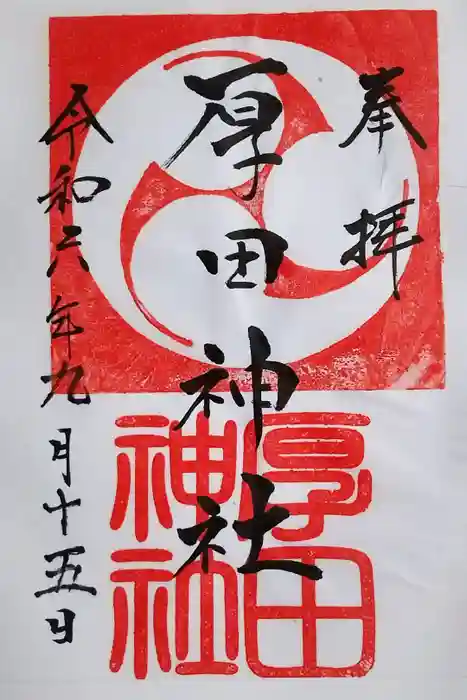 奉拝
厚田神社
令和六年九月十五日
厚田
神社